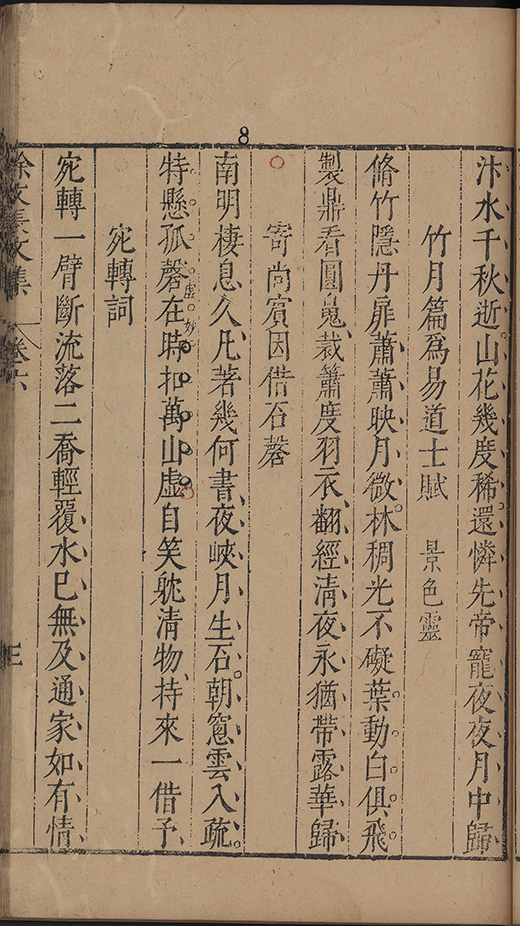 8
汴水千秋逝山花幾度稀還憐先帝寵夜夜月中歸
竹月篇爲易道士賦 景色靈
脩竹隱丹扉蕭蕭映月微林稠光不礙葉動白俱飛
製鼎看圓嵬裁簫度羽衣翻經清夜永猶帶露華歸
寄尚賓因借石磬
南明棲息久凡著幾何書夜峽月生石朝窻雲入疏
特懸孤磬在時扣萬山虛自笑躭清物持來一借予
虛妙
宛轉詞
宛轉一臂斷流落二喬輕覆水已無及通家如有情
徐文長文集 卷六 三